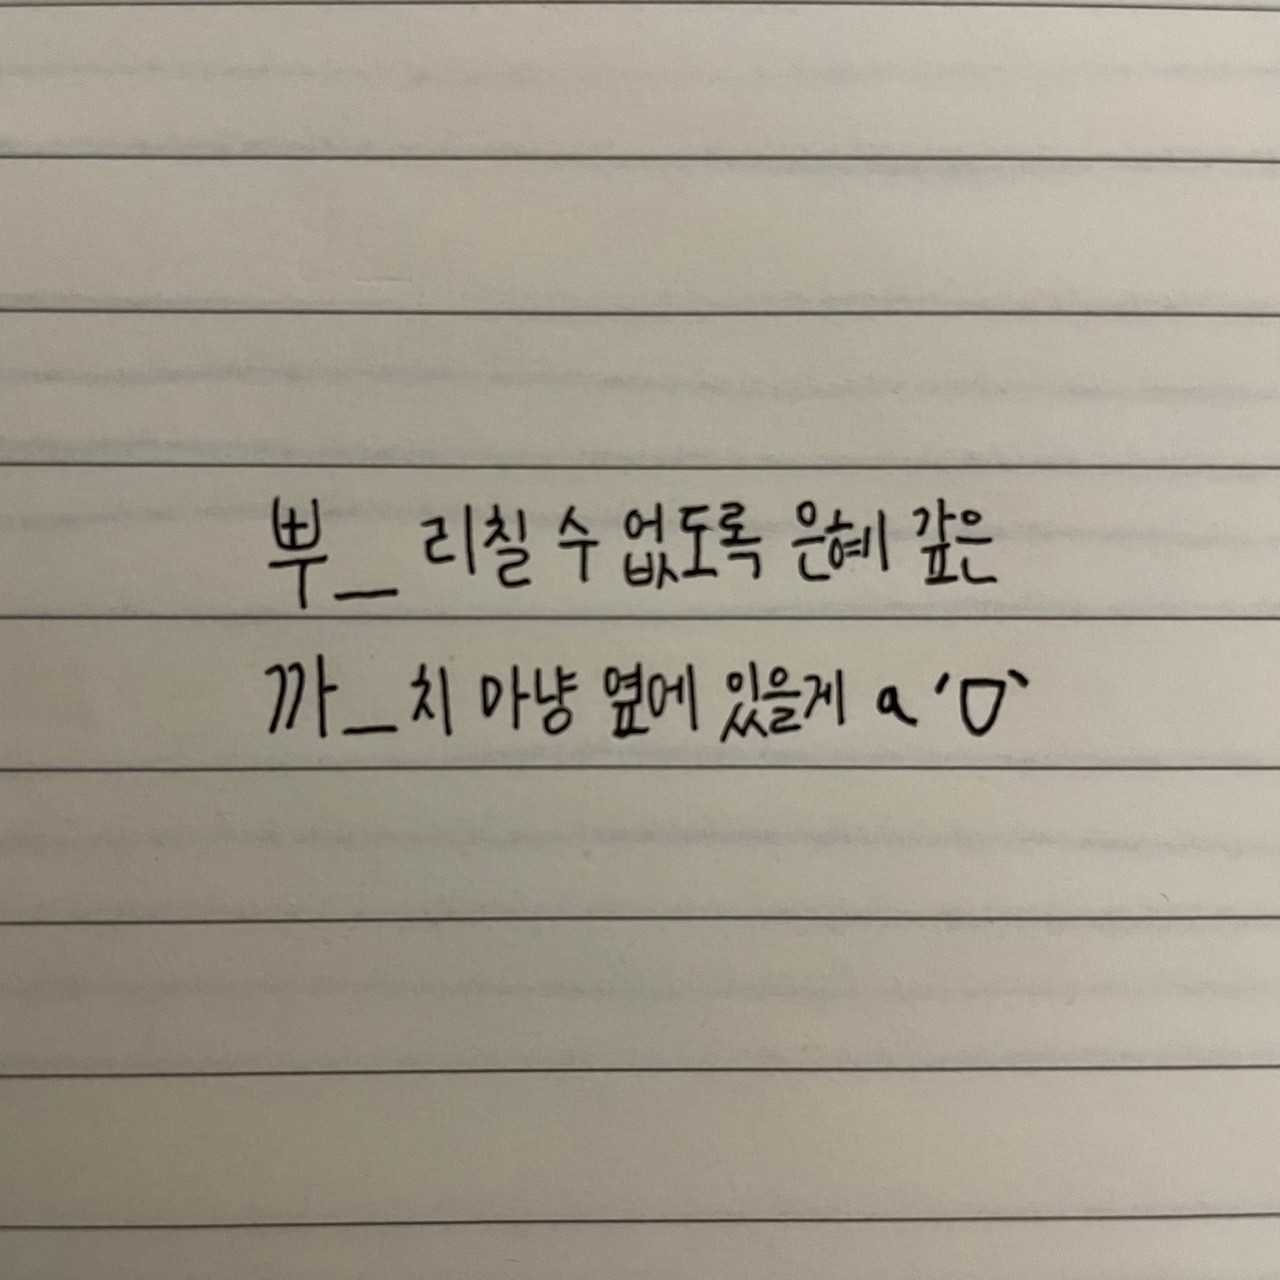 뿌_ 리칠 수 없도록 은혜 갚은
까_치 마냥 옆에 있을게 a 'ㅁ`